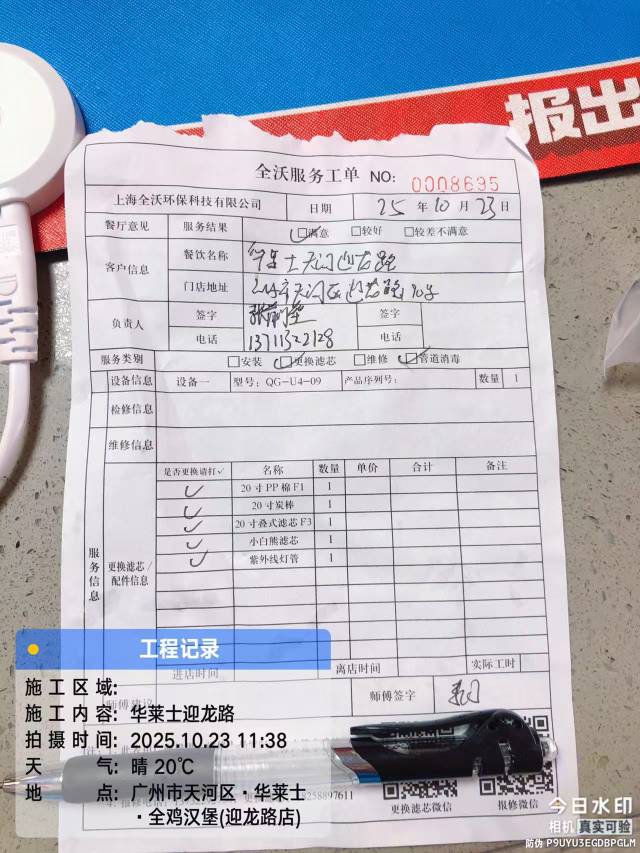 报出
全沃服务工单 NO: 0008695
上海全沃环保科技有限公司 日期 25 年 10 月 23 日
餐厅意见 服务结果 满意 较好 较差不满意
客户信息 餐饮名称
门店地址
负责人 签字 签字
电话 13711322128 电话
服务类别 安装 更换滤芯 维修 管道消毒
设备信息 设备一 型号: QG-U4-09 产品序列号: 数量 1
检修信息
维修信息
服务信息
更换滤芯/配件信息
是否更换请打✓ 名称 数量 单价 合计 备注
✓ 20寸PP棉F1 1
✓ 20寸炭棒 1
✓ 20寸叠式滤芯F3 1
✓ 小白熊滤芯 1
✓ 紫外线灯管 1
进店时间 离店时间 实际工时
师傅签字
工程记录
施工区域:
施工内容: 华莱士迎龙路
拍摄时间: 2025.10.23 11:38
天气: 晴 20℃
地点: 广州市天河区·华莱士
·全鸡汉堡(迎龙路店)
58897611
更换滤芯微信 报修微信
今日水印
相机 真实可验
防伪 P9UYU3EGDBPGLM